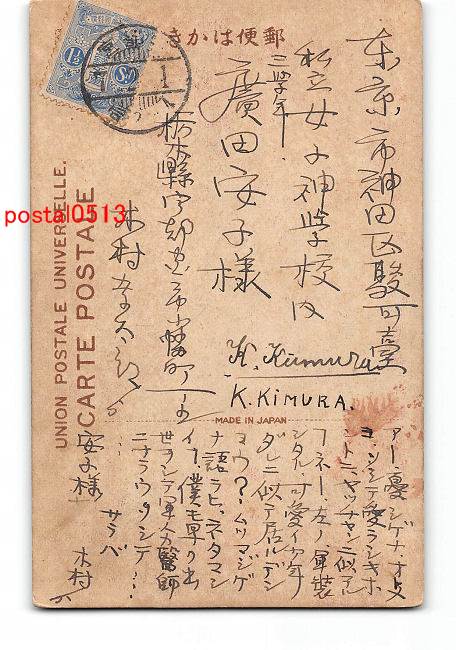 郵便はかき
東京市神田区駿河臺
私立女子神学校内
三学年
廣田安子様
栃木縣宇都宮市小幡町
木村
K. Kimura
K. KIMURA.
UNION POSTALE UNIVERSELLE.
CARTE POSTALE
MADE IN JAPAN
postal0513
アー憂シゲナ、オトメ
ヨ、ソシテ愛ラシキホ
ントニヤッチャンニ似テル
ワネー、左ノ軍装
シタル、可愛イ少年
ダレニ似テ居ルデシ
ョウ?、ムツマジゲ
ナ語ラヒ、ネタマシ
イ、僕モ早ク出
世ヲシテ軍人醫師
ニナラウシテ...
サラバ
木村
安子様